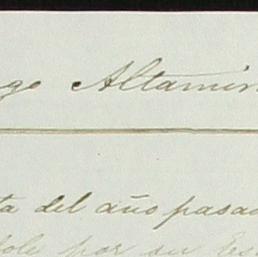 go Altamir
ta del año pasad
dole por su Es